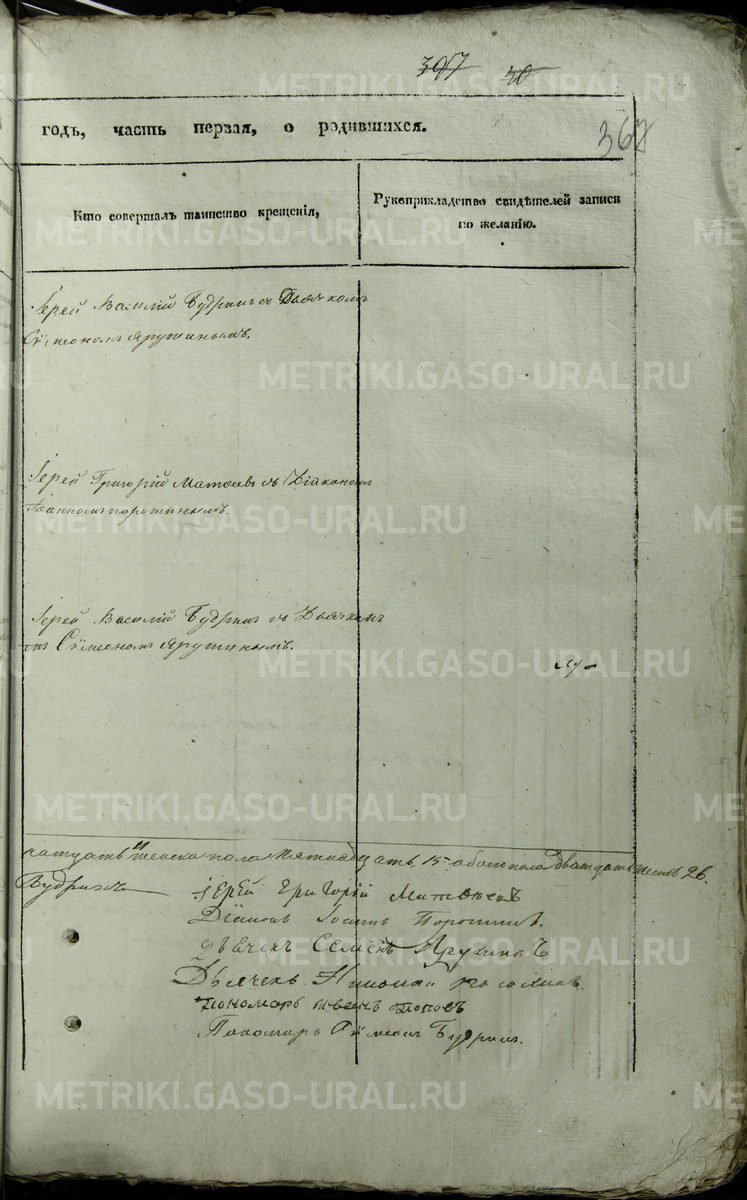 397 40
367
годъ, часть первая, о родившихся.
Кто совершалъ таинство крещенія,
Рукоприкладство свидѣтелей записи
по желанію.
Іерей Василій Будринъ съ Дьячкомъ
Сѵмеономъ Ярутинымъ.
Іерей Григорій Матѳеевъ съ Діякономъ
Іоанномъ Поротинымъ.
Іерей Василій Будринъ съ Дьячком
Сѵмеономъ Ярутинымъ.
и женска пола пятнадцать, 15 а обоего пола двадцать шесть 26.
Будринъ
Іерей Григорій Матѳеевъ
Діаконъ Іоаннъ Поротинъ.
дьячекъ Семенъ Ярутинъ
Дьячекъ Николай
пономарь Поповъ
Пономарь Сѵмеонъ Будринъ.
METRIKI.GASO-URAL.RU